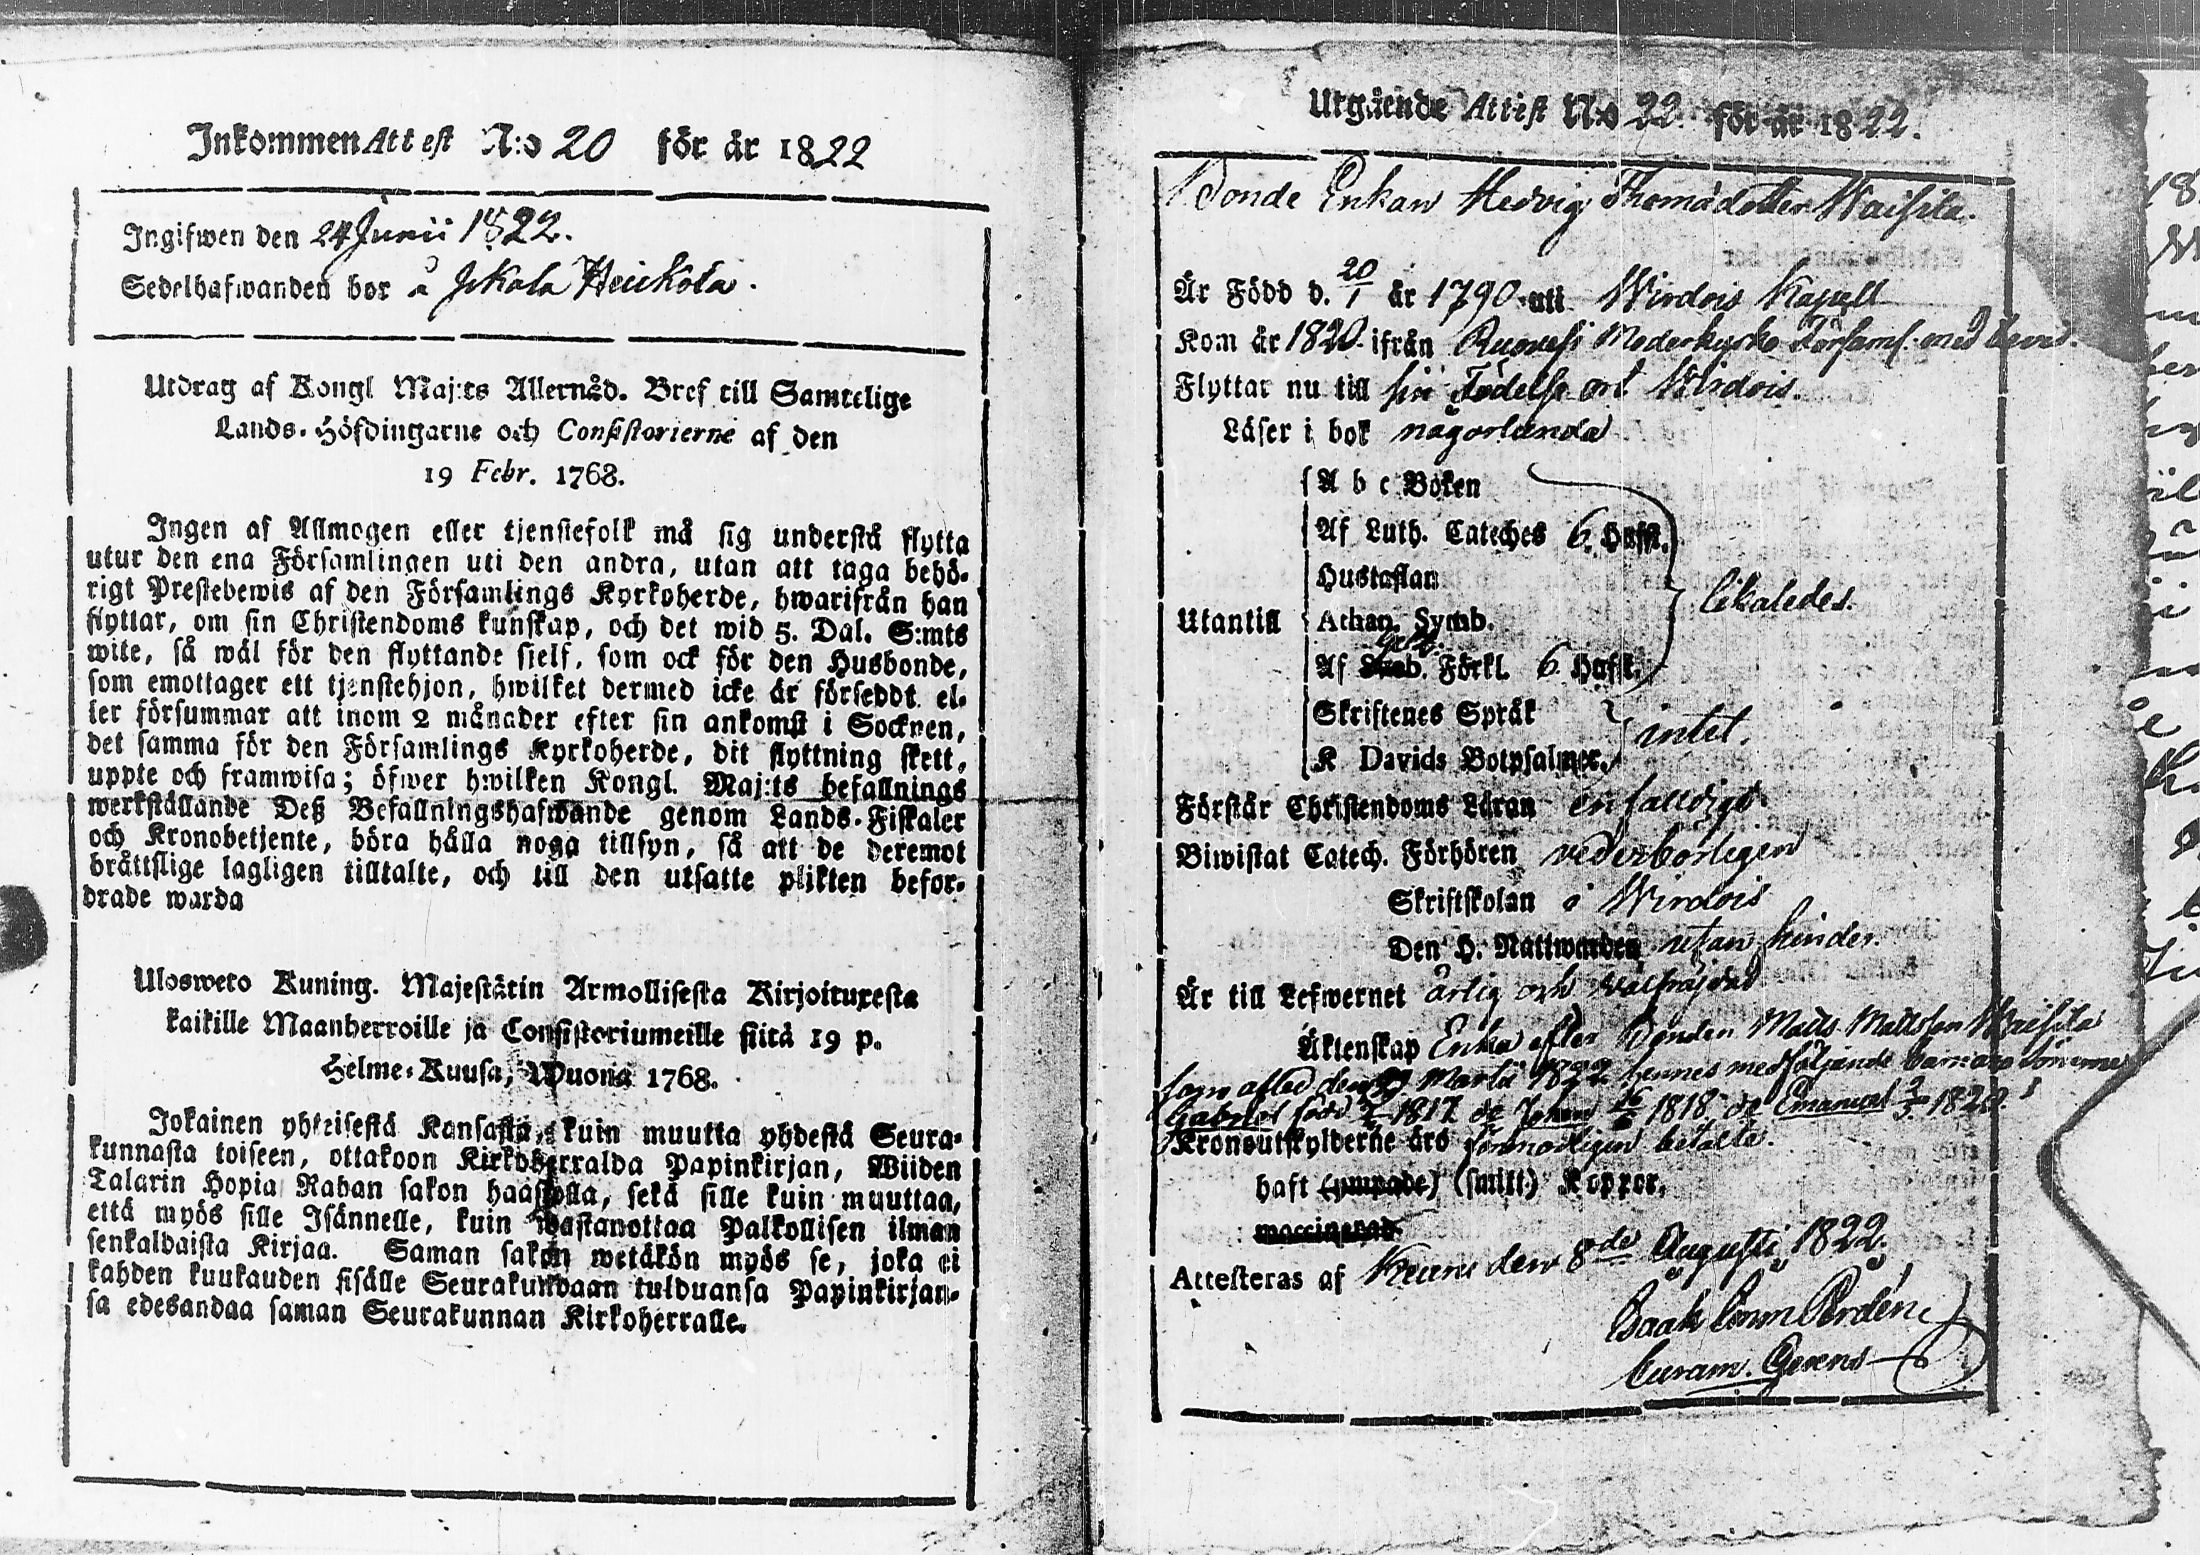 Inkommen Attest N:o 20 för år 1822
Ingifwen den 24 Junii 1822.
Sedelhafwanden bor å Jskala Heickola.
Utdrag af Kongl Maj:ts Allernåd. Bref till Samtelige
Lands-Höfdingarne och Consistorierne af den
19 Febr. 1768.
Ingen af Allmogen eller tjenstefolk må sig understå flytta
utur den ena Församlingen uti den andra, utan att taga behö-
rigt Prestebewis af den Församlings Kyrkoherde, hwarifrån han
flyttar, om sin Christendoms kunskap, och det wid 5. Dal. S:mts
wite, så wäl för den flyttande sielf, som ock för den Husbonde,
som emottager ett tjenstehjon, hwilket dermed icke är försedt el-
ler försummar att inom 2 månader efter sin ankomst i Socknen,
det samma för den Församlings Kyrkoherde, dit flyttning skett,
uppte och framwisa; öfwer hwilken Kongl. Maj:ts befallnings
werkställande Deß Befallningshafwande genom Lands-Fiskaler
och Kronobetjente, böra hålla noga tillsyn, så att de deremot
bråttslige lagligen tilltalte, och till den utsatte plikten befor-
drade warda
Ulosweto Kuning. Majestätin Armollisesta Kirjoituxesta
kaikille Maanherroille ja Consistoriumeille siitä 19 p.
Helme-Kuusa, Wuona 1768.
Jokainen yhteisestä Kansasta, kuin muutta yhdestä Seura-
kunnasta toiseen, ottakoon Kirkoherralda Papinkirjan, Wiiden
Talarin Hopia Rahan sakon haastolla, sekä sille kuin muuttaa,
että myös sille Isännelle, kuin wastanottaa Palkollisen ilman
senkaldaista Kirjaa. Saman sakon wetäkön myös se, joka ei
kahden kuukauden sisälle Seurakundaan tulduansa Papinkirjan-
sa edesandaa saman Seurakunnan Kirkoherralle.
Utgående Attest N:o 22 för år 1822.
Bonde Enkan Hedvig Thomädotter Waisila.
Är Född d. 20/1 år 1790 uti Wirdois Kapell
Kom år 1820 ifrån Ruovesi Moderkyrko Församl. med
Flyttar nu till sin Födelse ort Wirdois.
Läser i bok någorlunda
A b c Boken
Af Luth. Cateches 6. Hufst.
Hustaflan
Utantill Athan. Symb. likaledes.
Af Förkl. 6 Hufst.
Skriftenes Språk
K Davids Botpsalmer. intet.
Förstår Christendoms Läran enfaldigt
Biwistat Catech. Förhören vederbörligen
Skriftskolan i Wirdois
Den H. Nattwarden utan hinder.
Är till Lefwernet ärlig och välfräjdad
Äktenskap Enka efter Bonden Matts Mattsson Waisila
som afled den Martii 1822 hennes medföljande barn äro sönerne
Gabriel född 1817 Johan 1818 Emanuel 1820.
Kronoutskylderne äro förmodligen betalte.
haft (ympade) (smitt:) Koppor.
vaccinerad
Attesteras af Keuru den 8de Augusti 1822.
Isaak Conr Pordén
Curam. Gerens